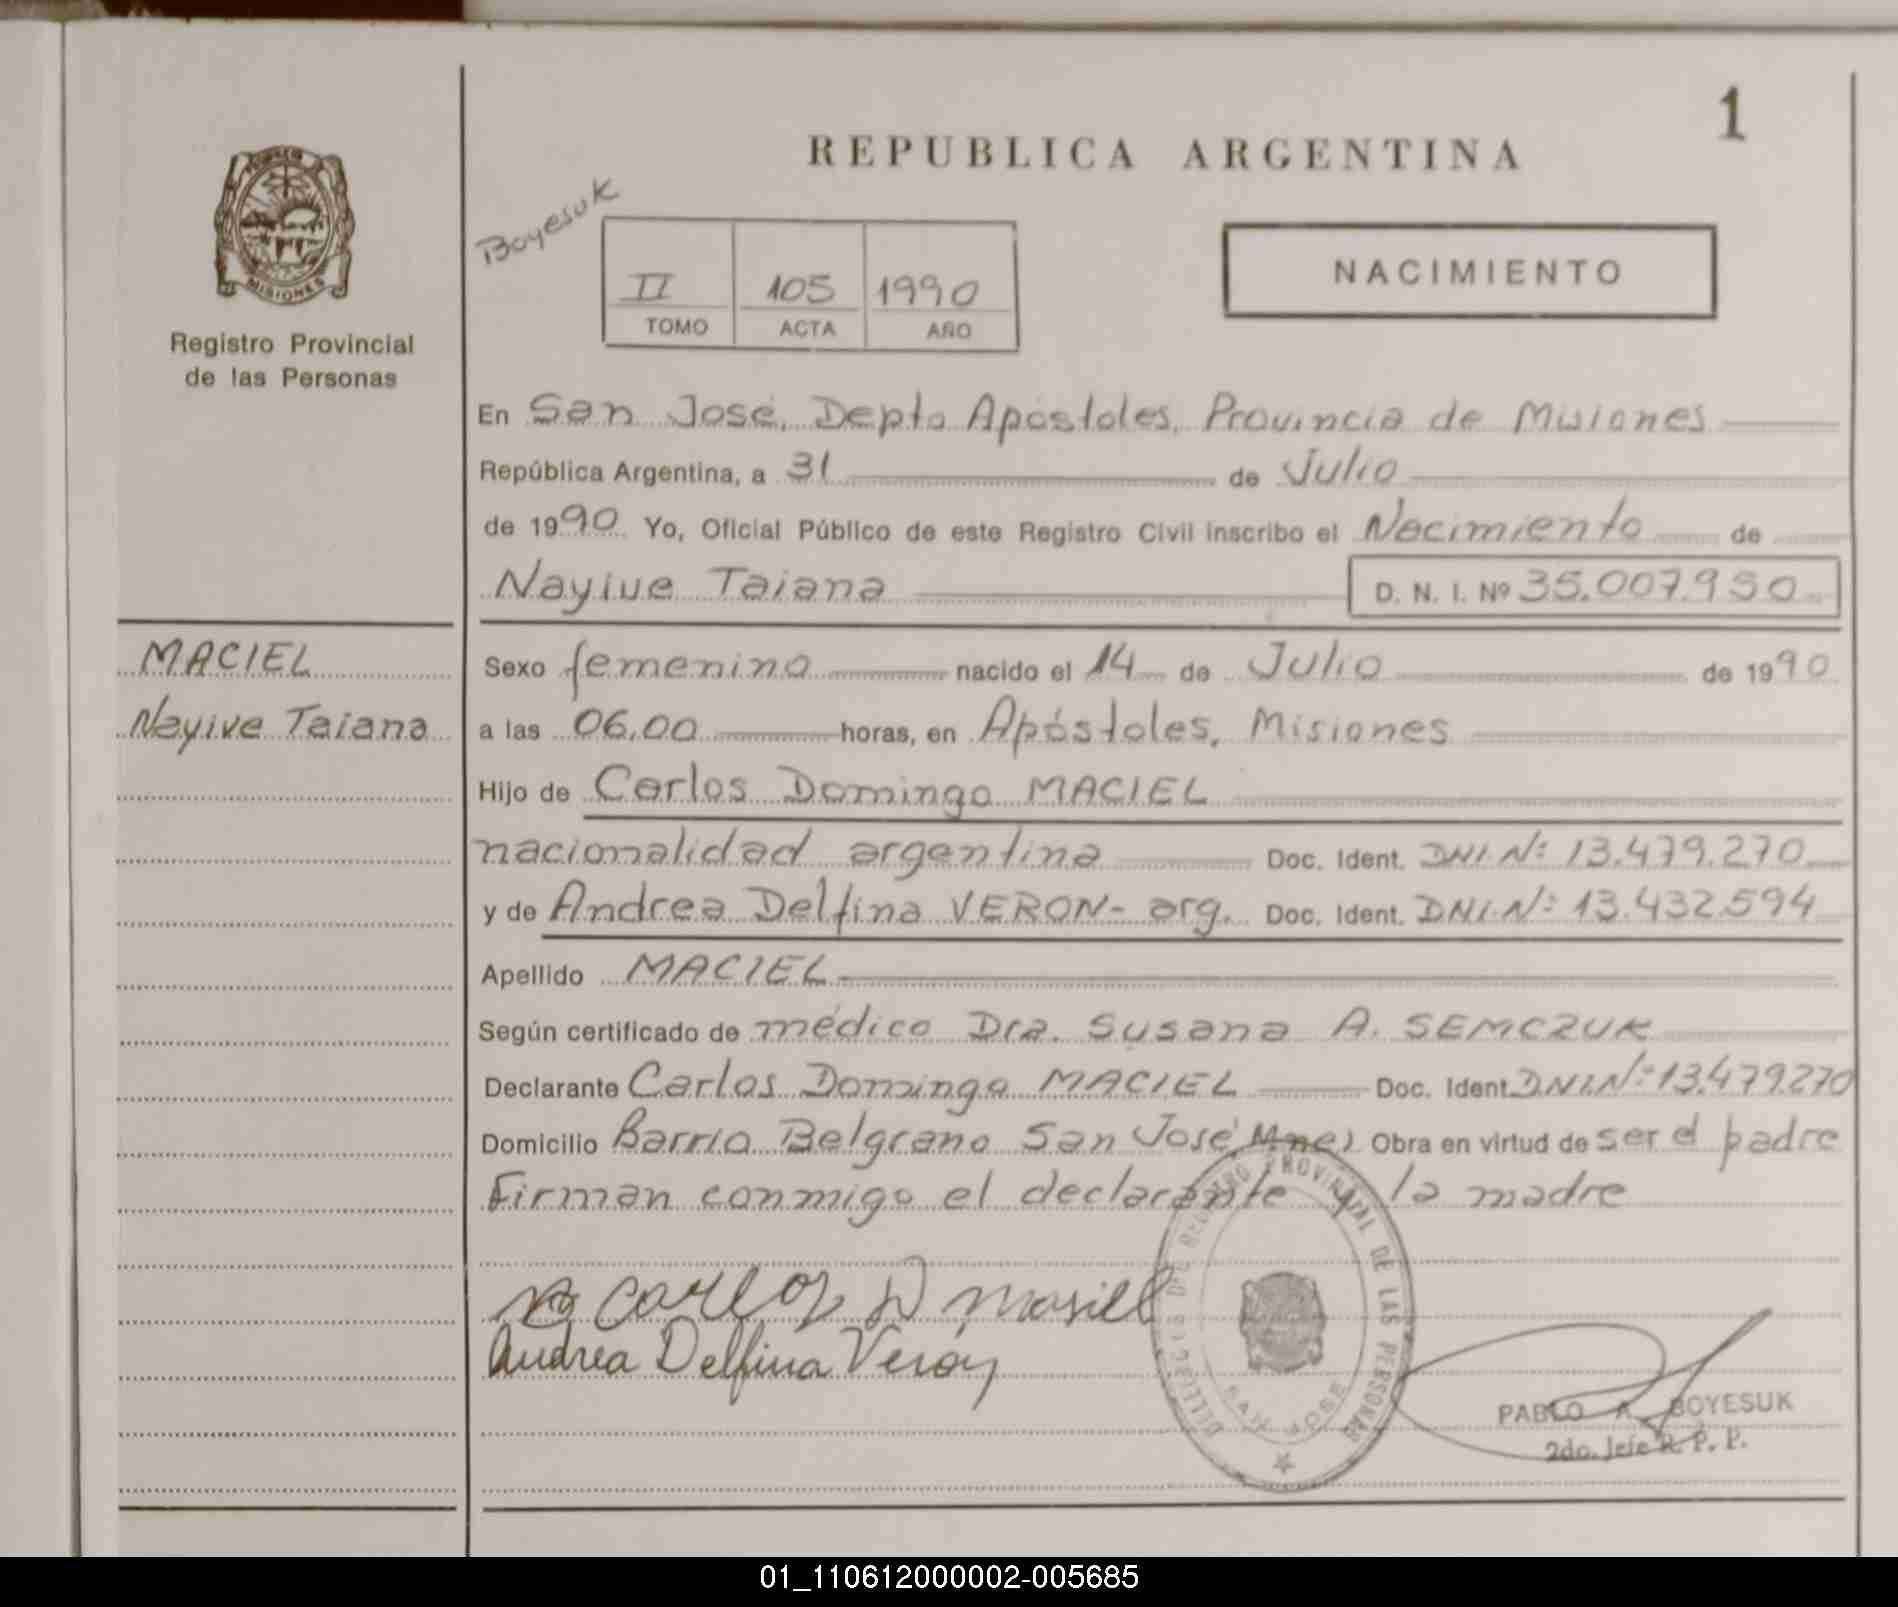 1
REPUBLICA ARGENTINA
MISIONES
Registro Provincial
de las Personas
Boyesuk
II 105 1990
TOMO ACTA AÑO
NACIMIENTO
En San José, Depto Apóstoles, Provincia de Misiones
República Argentina, a 31 de Julio
de 1990 Yo, Oficial Público de este Registro Civil inscribo el Nacimiento de
Nayive Taiana D. N. I. Nº 35.007.950
MACIEL
Nayive Taiana
Sexo femenino nacido el 14 de Julio de 1990
a las 06,00 horas, en Apóstoles, Misiones
Hijo de Carlos Domingo MACIEL
nacionalidad argentina Doc. Ident. DNI.Nº: 13.479.270
y de Andrea Delfina VERON- arg. Doc. Ident. DNI.Nº: 13.432.594
Apellido MACIEL
Según certificado de médico Dra. Susana A. SEMCZUK
Declarante Carlos Domingo MACIEL Doc. Ident. DNI.Nº: 13.479.270
Domicilio Barrio Belgrano San José, Mnes, Obra en virtud de ser el padre
Firman conmigo el declarante y la madre
Carlos D Masiel
Andrea Delfina Veron
REGISTRO PROVINCIAL DE LAS PERSONAS
SAN JOSE
PABLO A. BOYESUK
2do. Jefe R. P. P.
01_110612000002-005685